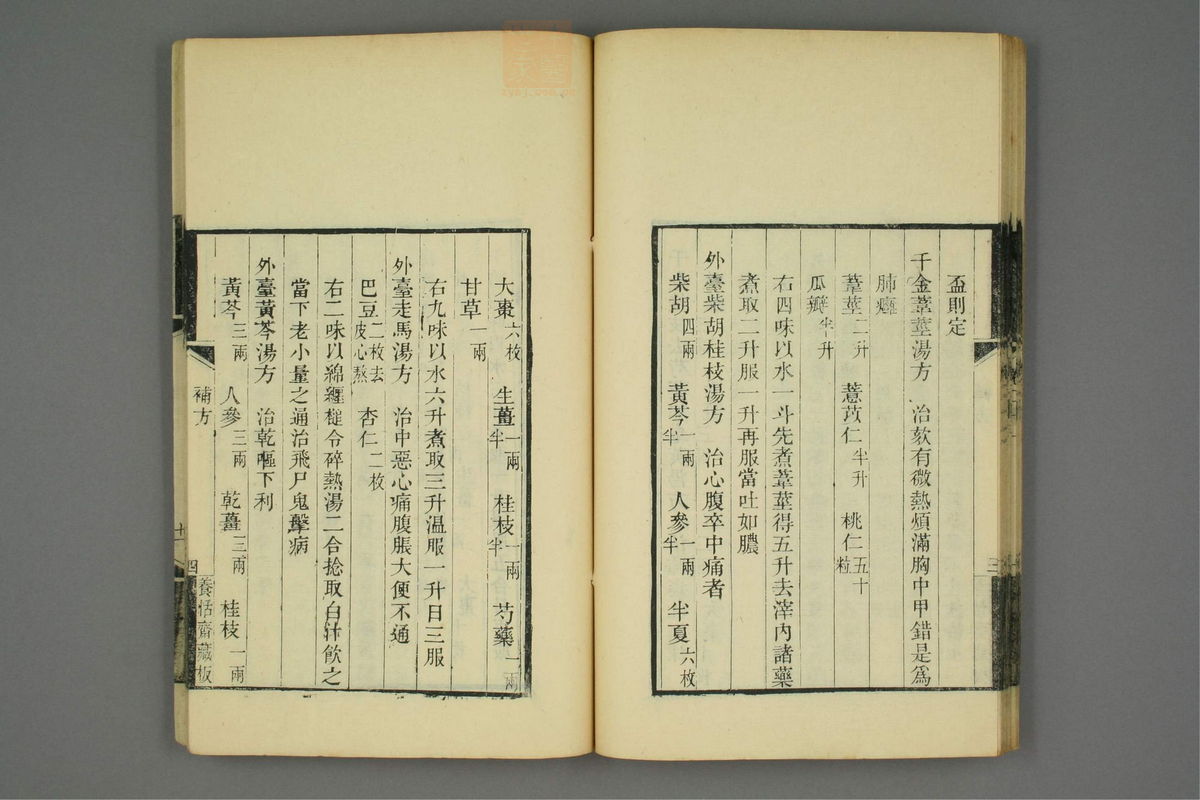 盃則定
千金葦莖湯方　治欬有微熱煩滿胸中甲錯是爲
肺癰
葦莖二升　薏苡仁半升　桃仁五十粒
瓜瓣半升
右四味以水一斗先煮葦莖得五升去滓內諸藥
煮取二升服一升再服當吐如膿
外臺柴胡桂枝湯方　治心腹卒中痛者
柴胡四兩　黃芩一兩半　人參一兩半　半夏六枚
三
大棗六枚　生薑一兩半　桂枝一兩半　芍藥一兩
甘草一兩
右九味以水六升煮取三升温服一升日三服
外臺走馬湯方　治中惡心痛腹脹大便不通
巴豆二枚去皮心熬　杏仁二枚
右二味以綿纏槌令碎熱湯二合捻取白汁飲之
當下老小量之通治飛尸鬼擊病
外臺黃芩湯方　治乾嘔下利
黃芩三兩　人參三兩　乾薑三兩　桂枝一兩
補方
十一
四
養恬齋藏板
zysj.com.cn